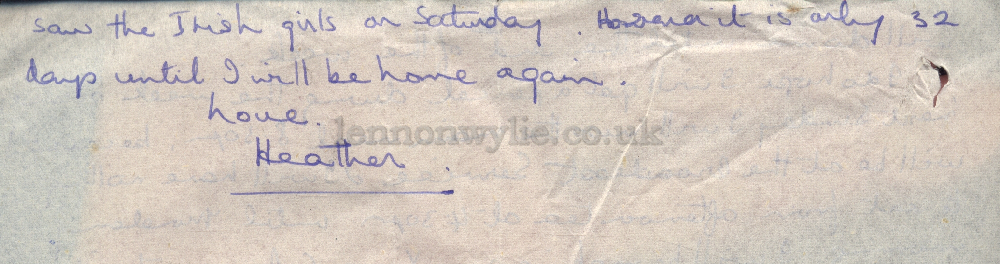 saw the Irish girls on Saturday. However it is only 32
days until I will be home again.
Love.
lennonwylie.co.uk
Heather.